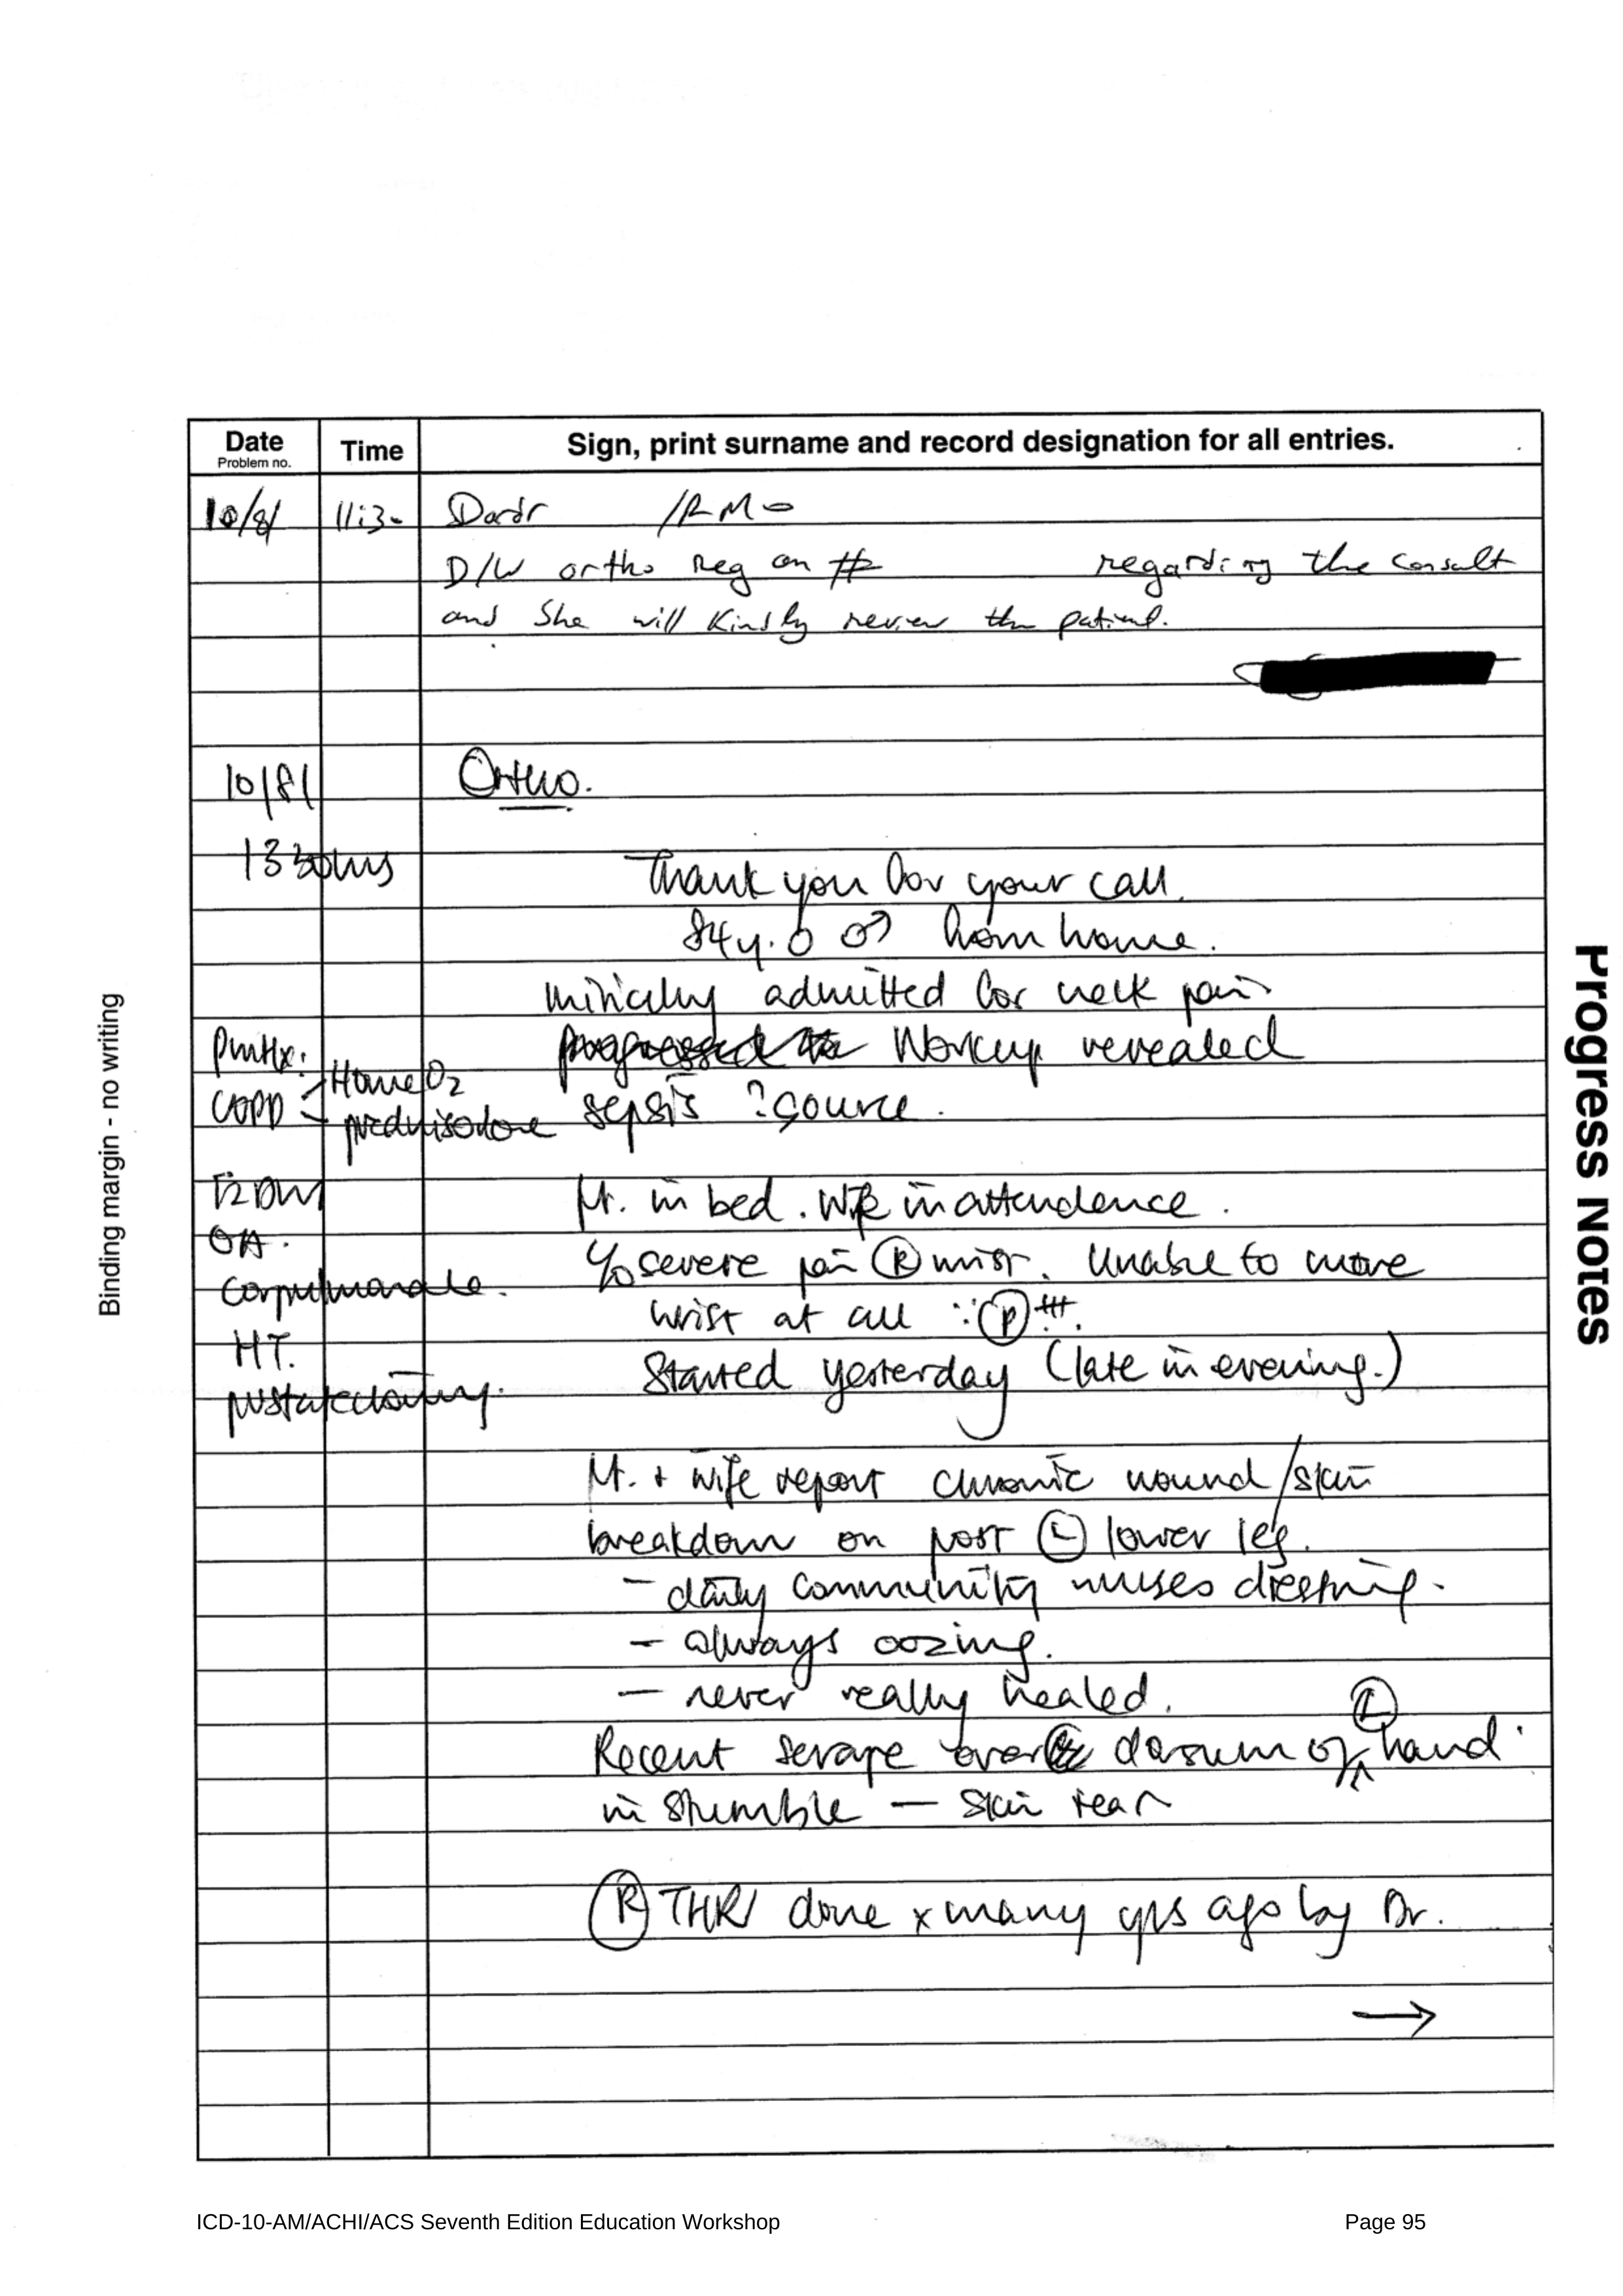 Date
Problem no.
Time
Sign, print surname and record designation for all entries.
10/8/ 11:30 /RMO
D/W ortho Reg on # regarding the consult
and She will Kindly review the patient.
10/8/ Ortho.
1330hrs
Thank you for your call.
84y.o ♂ from home.
initially admitted for neck pain
progressed to Workup revealed
sepsis ?source.
PmHx:
COPD - Home O2
- prednisolone
OA.
Cor pulmonale.
HT.
prostatectomy.
Pt. in bed. Wife in attendence.
c/o severe pain Ⓡ wrist. Unable to move
wrist at all ∵ Ⓟ +++.
Started yesterday (late in evening.)
Pt. + wife report chronic wound/skin
breakdown on post Ⓛ lower leg.
- daily community nurses dressing.
- always oozing.
- never really healed.
Recent scrape over dorsum of Ⓛ hand
in stumble — skin tear
Ⓡ THR done x many yrs ago by Dr.
→
Binding margin - no writing
Progress Notes
ICD-10-AM/ACHI/ACS Seventh Edition Education Workshop
Page 95